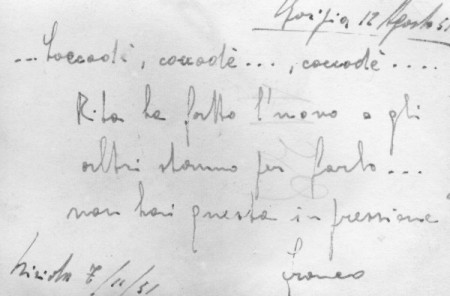 Gorizia 12 Agosto 51
... Coccodè, coccodè ... , coccodè ....
Rita ha fatto l'uovo e gli
altri stanno per farlo ...
non hai questa impressione
Franco
7/11/51